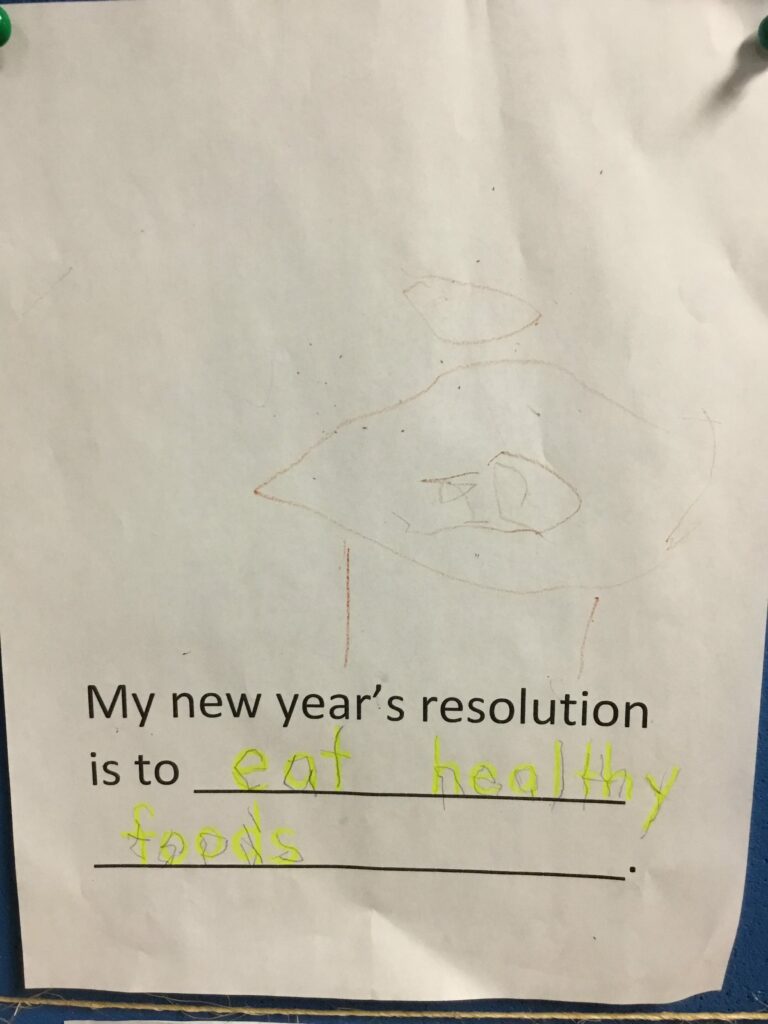 My new year's resolution
is to eat healthy
foods.